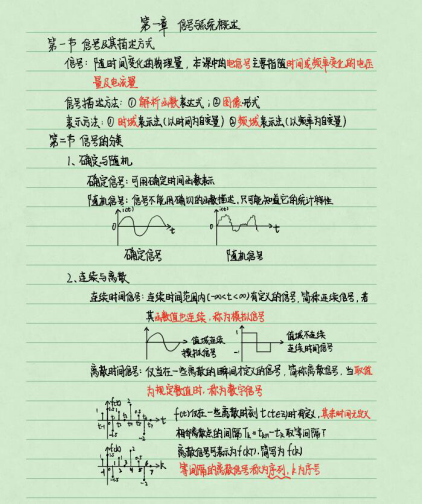 第一章 信号系统概述
第一节 信号及其描述方式
信号: 随时间变化的物理量, 本课中的电信号主要指随时间或频率变化的电压
量及电流量
信号描述方法: ① 解析函数表达式; ② 图像形式
表示方法: ① 时域表示法(以时间为自变量) ② 频域表示法(以频率为自变量)
第二节 信号的分类
1、确定与随机
确定信号: 可用确定时间函数表示
随机信号: 信号不能用确切的函数描述, 只可能知道它的统计特性
i(t)
0
t
i(t)
0
t
确定信号
随机信号
2、连续与离散
连续时间信号: 连续时间范围内(-∞<t<∞)有定义的信号, 简称连续信号, 若
其函数值也连续, 称为模拟信号
值域连续
模拟信号
1
-1
值域不连续
连续时间信号
离散时间信号: 仅当在一些离散的瞬间才定义的信号, 简称离散信号, 当取值
为规定数值时, 称为数字信号
t
f(t)仅在一些离散时刻 t 时有定义, 其余时间无定义
相邻离散点的间隔 Tₖ=tₖ₊₁-tₖ 取等间隔T
f(k)
k
离散信号可表示为f(kT), 简写为 f(k)
等间隔的离散信号称为序列, k为序号